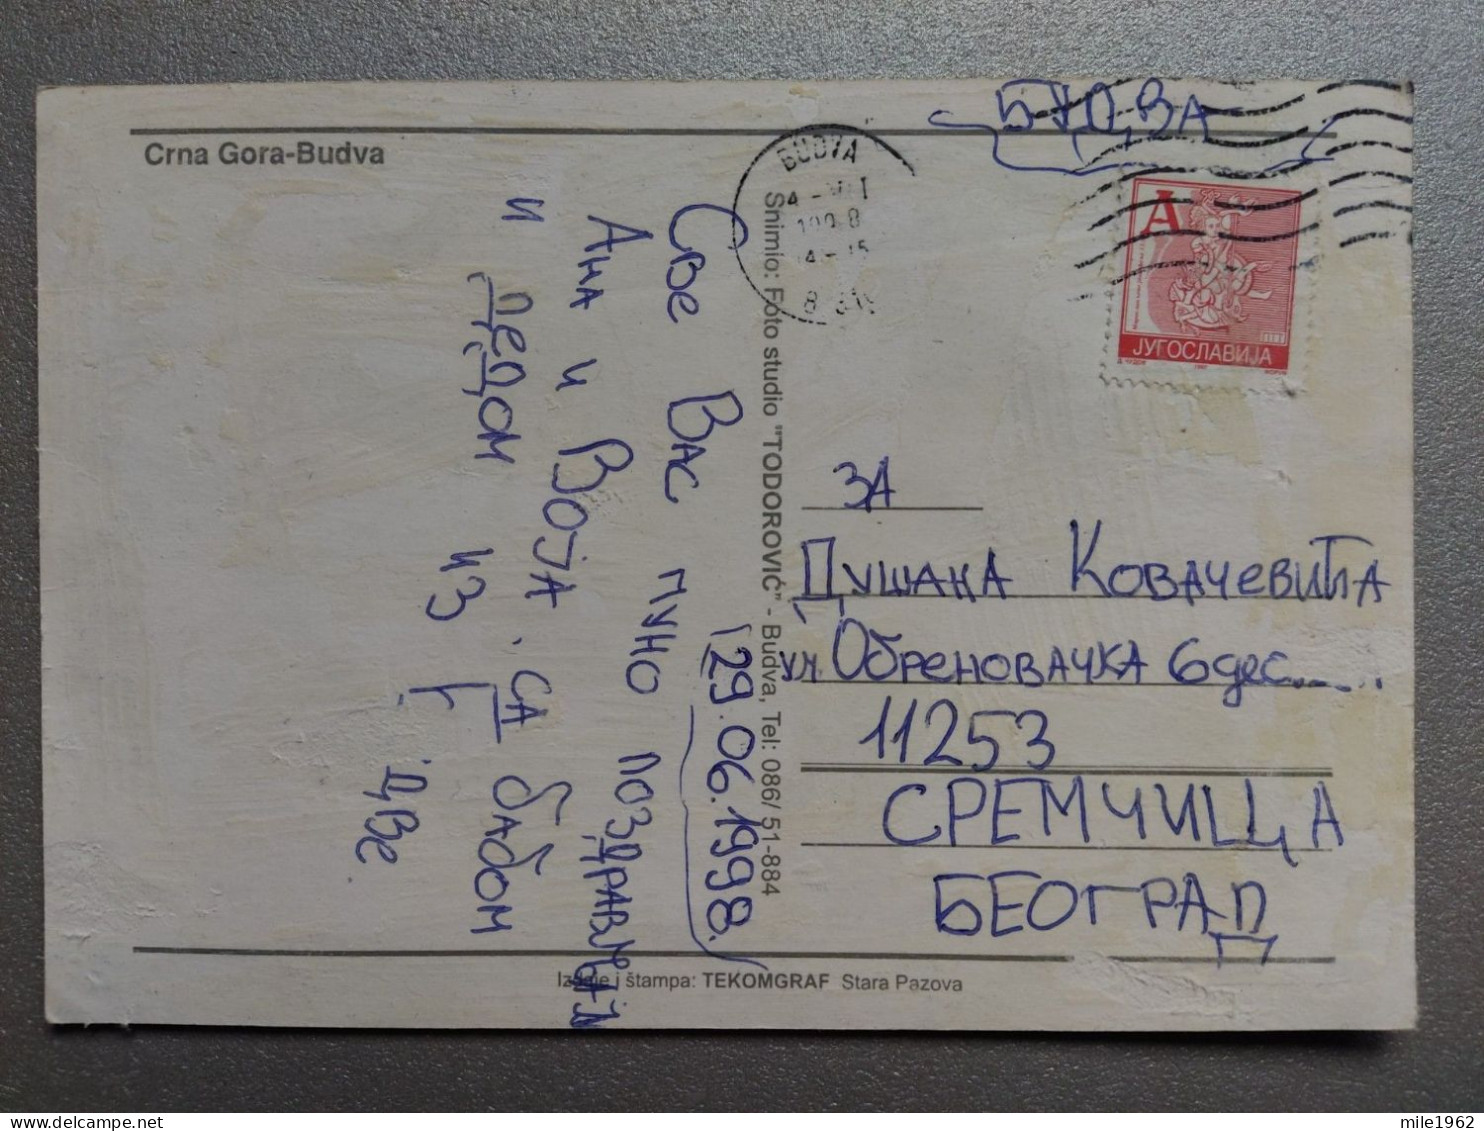 Crna Gora-Budva
БУДВА
BUDVA
1998
А
ЈУГОСЛАВИЈА
Snimio: Foto studio "TODOROVIĆ" - Budva, Tel: 086/ 51-884
29.06.1998.
Све Вас пуно поздрављају
Ана и Војa са бабом
и дедом из
Две
ЗА
Душана Ковачевића
ул. Обреновачка 6 дес.
11253
СРЕМЧИЦА
БЕОГРАД
Izdaje i štampa: TEKOMGRAF Stara Pazova
mile1962